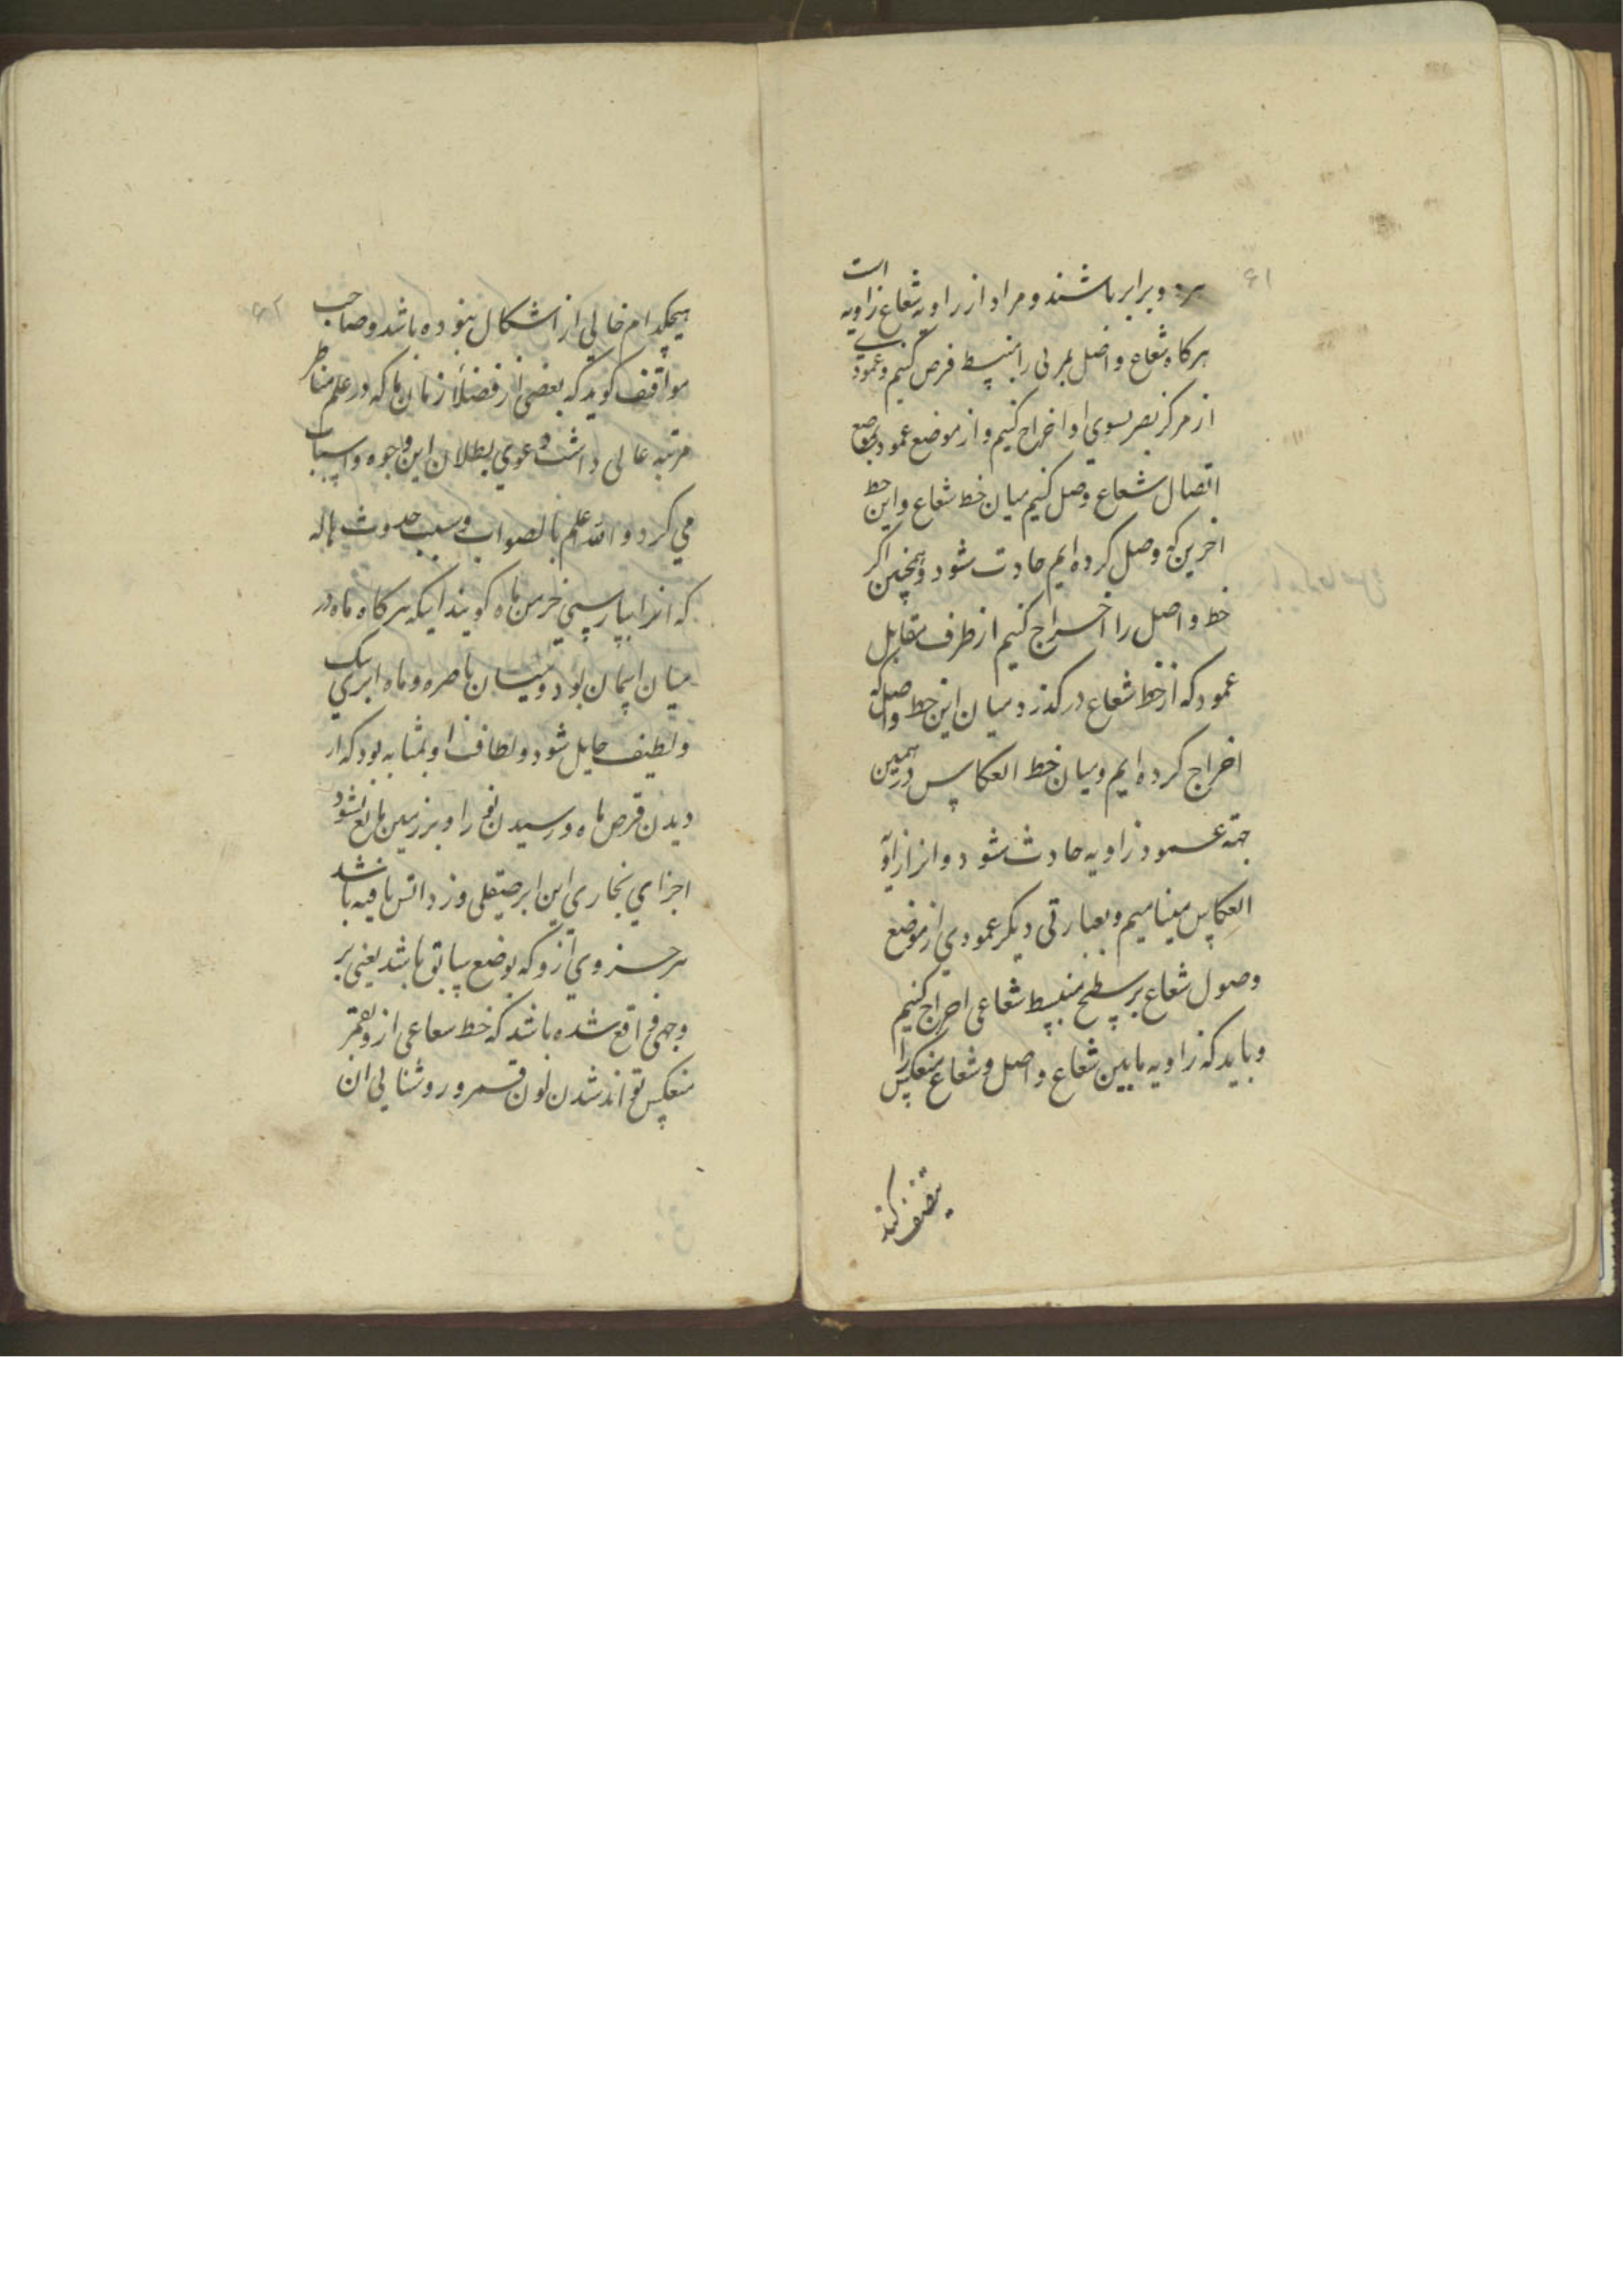 ۶۱
هر دو برابر باشند و مراد از زاویه شعاع زاویه است
هرکاه شعاع واصل بمرئی را منبسط فرض کنیم و عمودی
از مرکز بصر بسوی او اخراج کنیم و از موضع عمود بموضع
اتصال شعاع وصل کنیم میان خط شعاع و این خط
اخرین که وصل کرده ایم حادث شود و همچنین اکر
خط واصل را اخراج کنیم از طرف مقابل
عمود که از خط شعاع درکذرد میان این خط واصل که
اخراج کرده ایم و میان خط انعکاس در همین
جهة عمود زاویه حادث شود و انرا زاویه
انعکاس مینامیم و بعبارتی دیکر عمودی از موضع
وصول شعاع بر سطح منبسط شعاعی اخراج کنیم
و باید که زاویه مابین شعاع واصل و شعاع منعکس را
تنصیف کند
۶۲
هیچکدام خالی از اشکال نبوده باشد و صاحب
مواقف کوید که بعضی از فضلا زمان ما که در علم مناظر
مرتبه عالی داشت دعوی بطلان این وجوه و اسباب
می کرد و الله اعلم بالصواب و سبب حدوث هاله
که انرا بپارسی خرمن ماه کویند انیکه هرکاه ماه در
میان اسمان بود و میان باصره و ماه ابری تنک
و لطیف حایل شود و لطافت او بمثابه بود که از
دیدن قرص ماه و رسیدن نور او بر زمین مانع نشود
اجزای بخاری این ابر صیقلی و زداتش یافیه باشد
هر جزوی ازو که بوضع سابق باشد یعنی بر
وجهی واقع شده باشد که خط شعاعی ازو بقمر
منعکس تواند شدن لون قمر و روشنایی ان